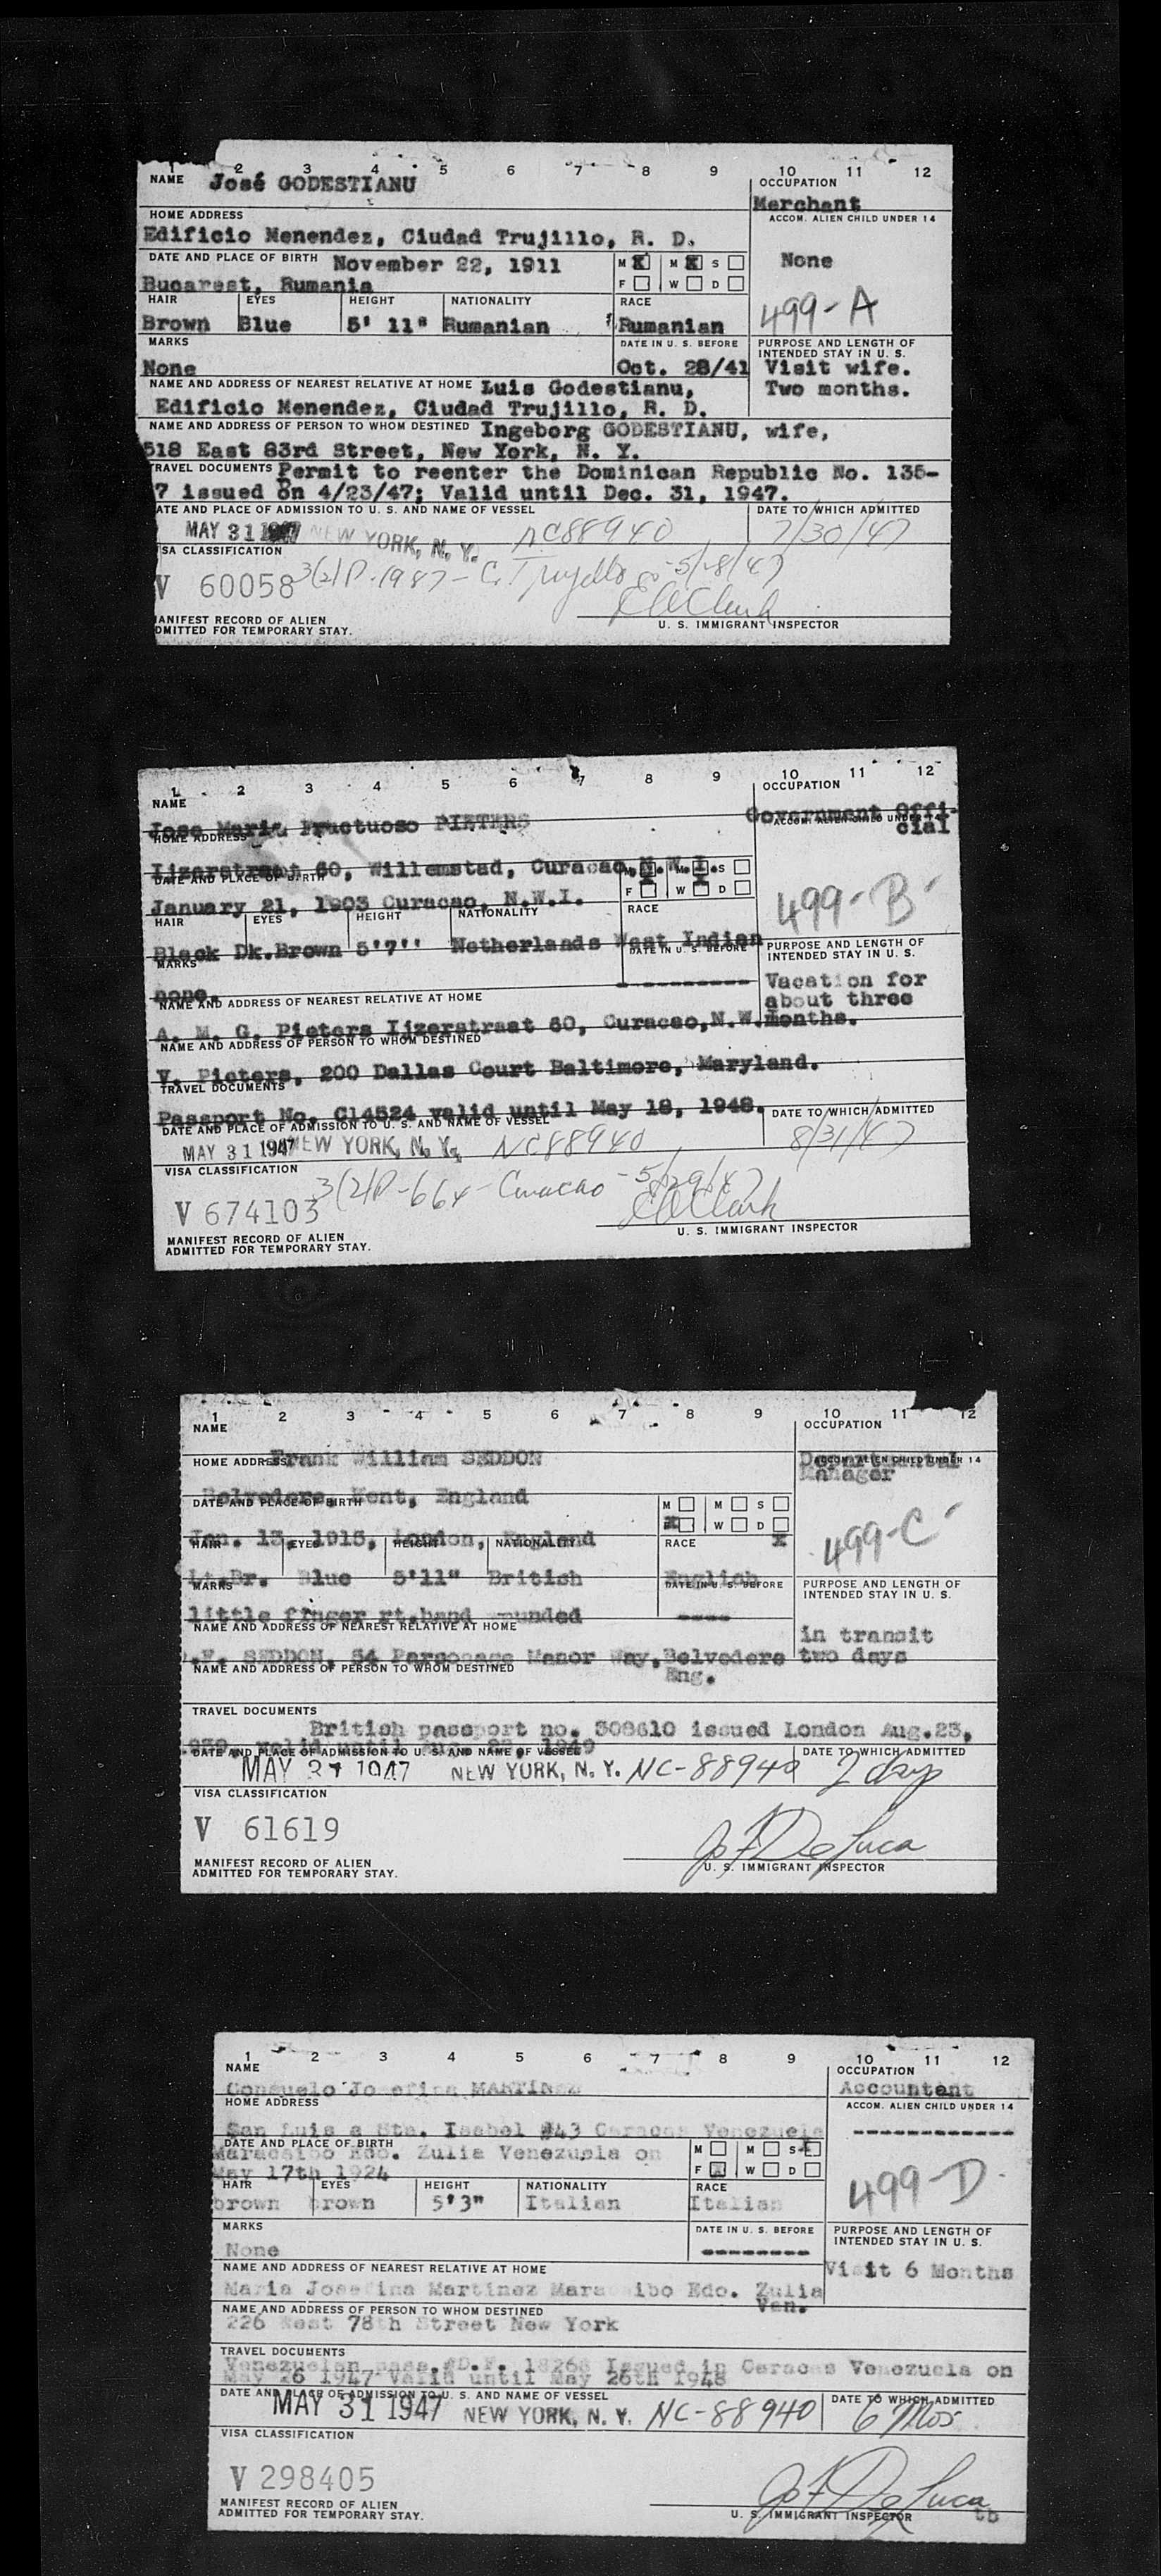 1 2 3 4 5 6 7 8 9 10 11 12
NAME José GODESTIANU
OCCUPATION
Merchant
HOME ADDRESS
ACCOM. ALIEN CHILD UNDER 14
Edificio Menendez, Ciudad Trujillo, R. D.
None
DATE AND PLACE OF BIRTH November 22, 1911
M X M X S
F W D
Bucarest, Rumania
HAIR EYES HEIGHT NATIONALITY RACE
499-A
Brown Blue 5' 11" Rumanian Rumanian
MARKS DATE IN U. S. BEFORE
PURPOSE AND LENGTH OF
INTENDED STAY IN U. S.
None Oct. 28/41 Visit wife.
Two months.
NAME AND ADDRESS OF NEAREST RELATIVE AT HOME Luis Godestianu,
Edificio Menendez, Ciudad Trujillo, R. D.
NAME AND ADDRESS OF PERSON TO WHOM DESTINED Ingeborg GODESTIANU, wife,
518 East 83rd Street, New York, N. Y.
TRAVEL DOCUMENTS Permit to reenter the Dominican Republic No. 135-
7 issued on 4/23/47; Valid until Dec. 31, 1947.
ATE AND PLACE OF ADMISSION TO U. S. AND NAME OF VESSEL DATE TO WHICH ADMITTED
MAY 31 1947 NEW YORK, N. Y. NC88940 7/30/47
SA CLASSIFICATION
V 60058 3(2)P-1987-C. Trujillo 5/28/47
E A Clark
ANIFEST RECORD OF ALIEN
DMITTED FOR TEMPORARY STAY.
U. S. IMMIGRANT INSPECTOR
1 2 3 4 5 6 7 8 9 10 11 12
NAME OCCUPATION
Jose Maria Fructuoso PIETERS
Government Offi-
cial
HOME ADDRESS
ACCOM. ALIEN CHILD UNDER 14
Ijzerstraat 60, Willemstad, Curacao, N.W.I.
DATE AND PLACE OF BIRTH
M X M X S
F W D
January 21, 1903 Curacao, N.W.I.
499-B
HAIR EYES HEIGHT NATIONALITY RACE
Black Dk.Brown 5'7'' Netherlands West Indian
MARKS DATE IN U. S. BEFORE
PURPOSE AND LENGTH OF
INTENDED STAY IN U. S.
none. ----------
Vacation for
about three
months.
NAME AND ADDRESS OF NEAREST RELATIVE AT HOME
A. M. G. Pieters Ijzerstraat 60, Curacao,N.W.
NAME AND ADDRESS OF PERSON TO WHOM DESTINED
V. Pieters, 200 Dallas Court Baltimore, Maryland.
TRAVEL DOCUMENTS
Passport No. C14524 valid until May 18, 1948.
DATE AND PLACE OF ADMISSION TO U. S. AND NAME OF VESSEL DATE TO WHICH ADMITTED
MAY 31 1947 NEW YORK, N. Y. NC88940 8/31/47
VISA CLASSIFICATION
V 674103 3(2)P-664-Curacao-5/29/47
E A Clark
MANIFEST RECORD OF ALIEN
ADMITTED FOR TEMPORARY STAY.
U. S. IMMIGRANT INSPECTOR
1 2 3 4 5 6 7 8 9 10 11 12
NAME OCCUPATION
Frank William SEDDON
Departmental
Manager
HOME ADDRESS
ACCOM. ALIEN CHILD UNDER 14
Belvedere, Kent, England
DATE AND PLACE OF BIRTH
M M S
F X W D X
Jan. 13, 1915, London, England
499-C
HAIR EYES HEIGHT NATIONALITY RACE
Lt.Br. Blue 5'11" British English
MARKS DATE IN U. S. BEFORE
PURPOSE AND LENGTH OF
INTENDED STAY IN U. S.
little finger rt.hand wounded ----
in transit
two days
NAME AND ADDRESS OF NEAREST RELATIVE AT HOME
.F. SEDDON, 54 Parsonage Manor Way, Belvedere
Eng.
NAME AND ADDRESS OF PERSON TO WHOM DESTINED
TRAVEL DOCUMENTS
British passport no. 308610 issued London Aug.23,
939, valid until Aug. 23, 1949
DATE AND PLACE OF ADMISSION TO U. S. AND NAME OF VESSEL DATE TO WHICH ADMITTED
MAY 31 1947 NEW YORK, N. Y. NC-88940 2 days
VISA CLASSIFICATION
V 61619
Jos F De Luca
MANIFEST RECORD OF ALIEN
ADMITTED FOR TEMPORARY STAY.
U. S. IMMIGRANT INSPECTOR
1 2 3 4 5 6 7 8 9 10 11 12
NAME OCCUPATION
Consuelo Josefina MARTINEZ Accountant
HOME ADDRESS ACCOM. ALIEN CHILD UNDER 14
San Luis a Sta. Isabel #43 Caracas Venezuela ------------
DATE AND PLACE OF BIRTH
Maracaibo Edo. Zulia Venezuela on
May 17th 1924
M M S X
F X W D
499-D
HAIR EYES HEIGHT NATIONALITY RACE
brown brown 5'3" Italian Italian
MARKS DATE IN U. S. BEFORE
PURPOSE AND LENGTH OF
INTENDED STAY IN U. S.
None --------
Visit 6 Months
NAME AND ADDRESS OF NEAREST RELATIVE AT HOME
Maria Josefina Martinez Maracaibo Edo. Zulia
Ven.
NAME AND ADDRESS OF PERSON TO WHOM DESTINED
226 West 78th Street New York
TRAVEL DOCUMENTS
Venezuelan pass.#D.F. 18268 Issued in Caracas Venezuela on
May 26 1947 Valid until May 26th 1948
DATE AND PLACE OF ADMISSION TO U. S. AND NAME OF VESSEL DATE TO WHICH ADMITTED
MAY 31 1947 NEW YORK, N. Y. NC-88940 6 Mos
VISA CLASSIFICATION
V 298405
Jos F De Luca
MANIFEST RECORD OF ALIEN
ADMITTED FOR TEMPORARY STAY.
U. S. IMMIGRANT INSPECTOR
tb